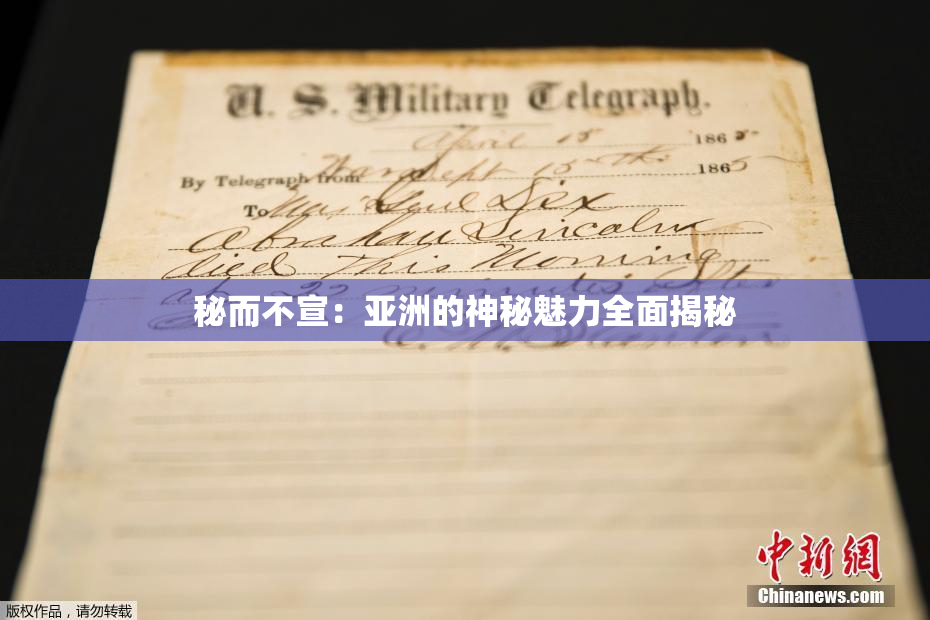 U. S. Military Telegraph.
April 15 1865
By Telegraph from War Dept 15th 1865
To Maj Genl Dix
Abraham Lincoln
died This Morning
at 22 minutes after
秘而不宣：亚洲的神秘魅力全面揭秘
E. M. Stanton
中新网
Chinanews.com
版权作品，请勿转载